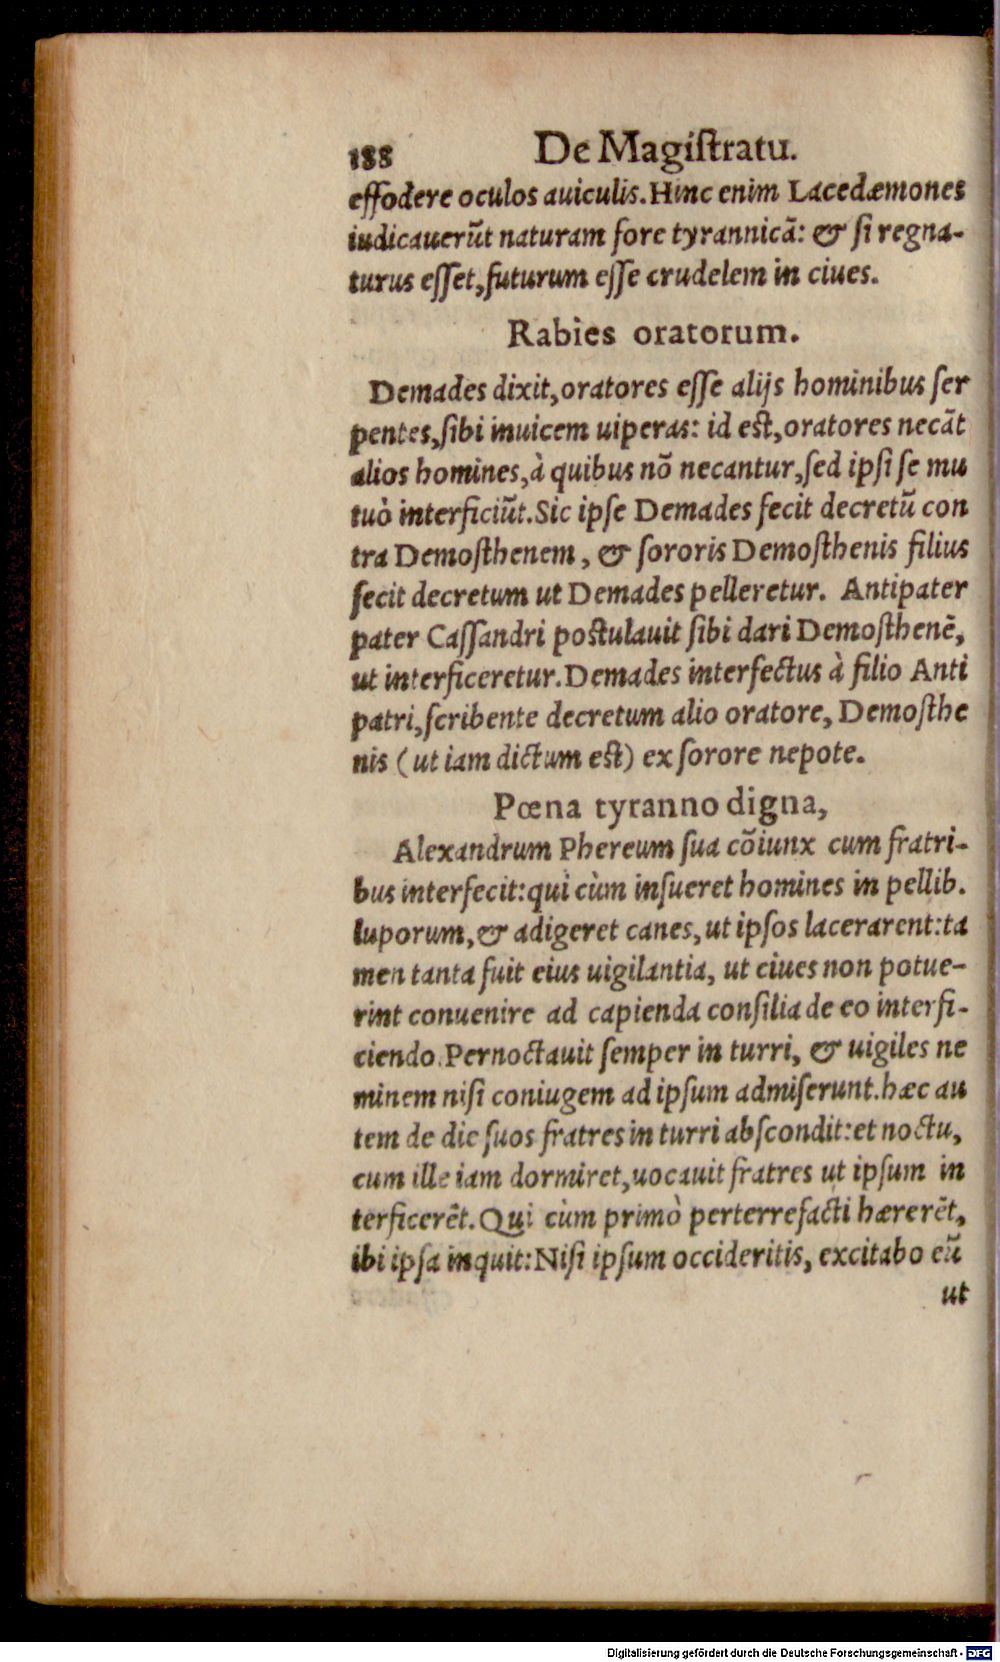 188 De Magiſtratu.
effodere oculos auiculis. Hinc enim Lacedæmones
iudicauerūt naturam fore tyrannicā: & ſi regna-
turus eſſet, futurum eſſe crudelem in ciues.
Rabies oratorum.
Demades dixit, oratores eſſe alijs hominibus ſer
pentes, ſibi inuicem uiperas: id eſt, oratores necāt
alios homines, à quibus nō necantur, ſed ipſi ſe mu
tuò interficiūt. Sic ipſe Demades fecit decretū con
tra Demoſthenem, & ſororis Demoſthenis filius
fecit decretum ut Demades pelleretur. Antipater
pater Caſſandri poſtulauit ſibi dari Demoſthenē,
ut interficeretur. Demades interfectus à filio Anti
patri, ſcribente decretum alio oratore, Demoſthe
nis (ut iam dictum eſt) ex ſorore nepote.
Pœna tyranno digna,
Alexandrum Phereum ſua cōiunx cum fratri-
bus interfecit: qui cùm inſueret homines in pellib.
luporum, & adigeret canes, ut ipſos lacerarent: ta
men tanta fuit eius uigilantia, ut ciues non potue-
rint conuenire ad capienda conſilia de eo interfi-
ciendo. Pernoctauit ſemper in turri, & uigiles ne
minem niſi coniugem ad ipſum admiſerunt. hæc au
tem de die ſuos fratres in turri abſcondit: et noctu,
cum ille iam dormiret, uocauit fratres ut ipſum in
terficerēt. Qui cùm primò perterrefacti hærerēt,
ibi ipſa inquit: Niſi ipſum occideritis, excitabo eū
ut
Digitalisierung gefördert durch die Deutsche Forschungsgemeinschaft - DFG